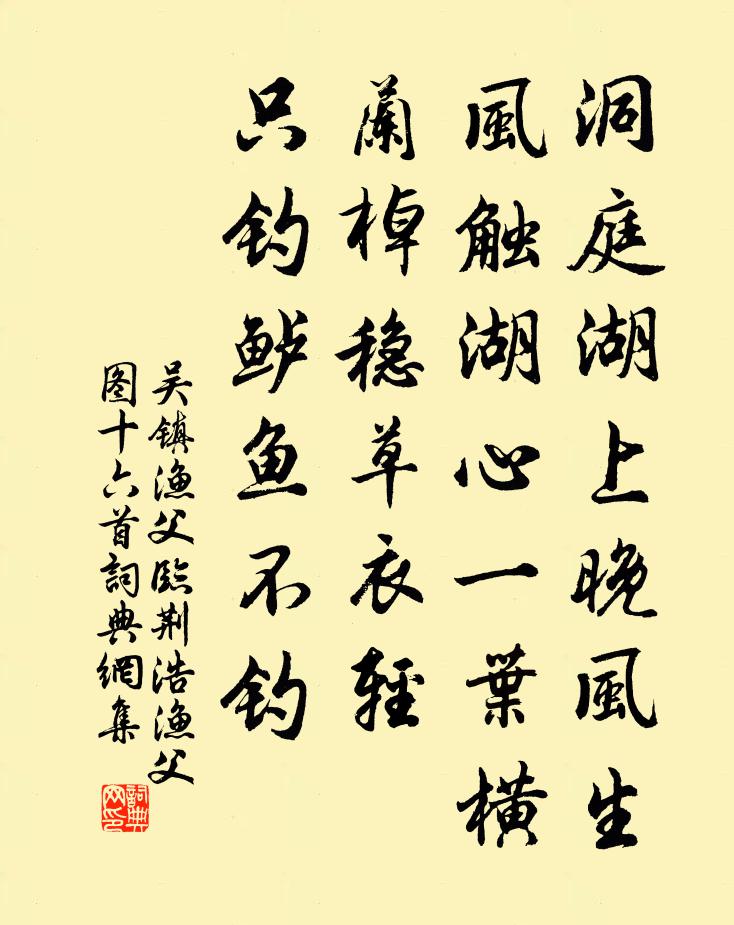 洞庭湖上晚风生
風触湖心一葉橫
蘭棹稳草衣輕
只钓鲈鱼不钓
吴镇渔父臨荆浩渔父
图十六首詞典網集
詞典网印